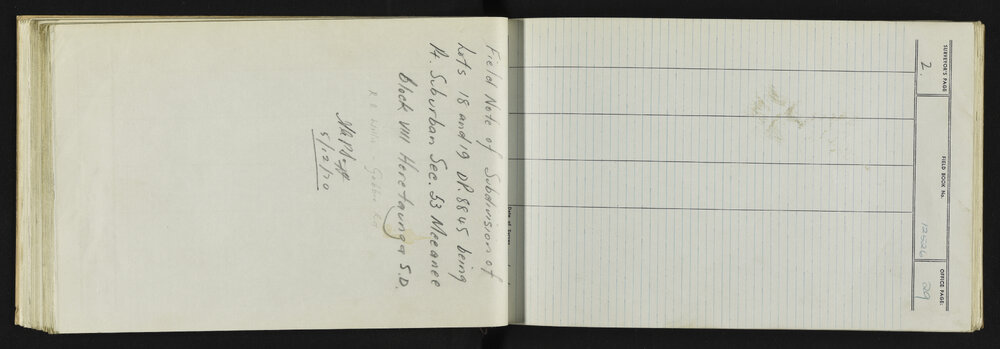 Field Note of Subdivision of
Lots 18 and 19 DP. 8845 being
Pt. Suburban Sec. 53 Meeanee
Block VIII Heretaunga S.D.
5/12/70
SURVEYOR'S PAGE
2.
FIELD BOOK No.
OFFICE PAGE:
29
Date of Survey